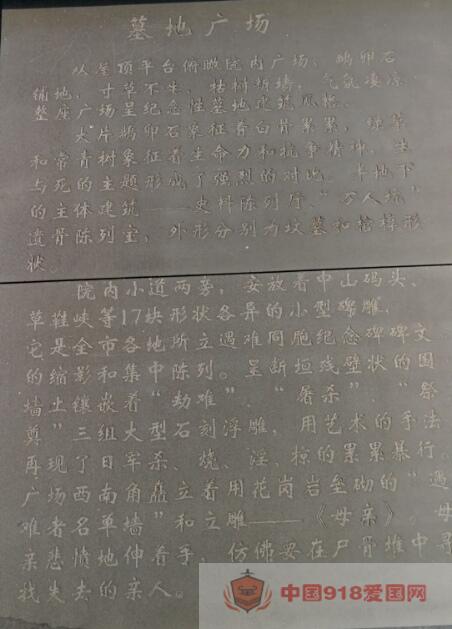 墓地广场
从屋顶平台俯瞰院内广场，鹅卵石
铺地，寸草不生，枯树断墙，气氛凄凉，
整座广场呈纪念性墓地建筑风格。
大片鹅卵石象征着白骨累累，绿草
和常青树象征着生命力和抗争精神，生
与死的主题形成了强烈的对比。半地下
的主体建筑——史料陈列厅、“万人坑”
遗骨陈列室，外形分别为坟墓和棺椁形
状。
院内小道两旁，安放着中山码头、
草鞋峡等17块形状各异的小型碑雕，
它是全市各地所立遇难同胞纪念碑碑文
的缩影和集中陈列。呈断垣残壁状的围
墙上镶嵌着“劫难”、“屠杀”、“祭
奠”三组大型石刻浮雕，用艺术的手法
再现了日军杀、烧、淫、掠的累累暴行。
广场西南角矗立着用花岗岩垒砌的“遇
难者名单墙”和立雕——《母亲》。母
亲悲愤地伸着手，仿佛要在尸骨堆中寻
找失去的亲人。
中国918爱国网